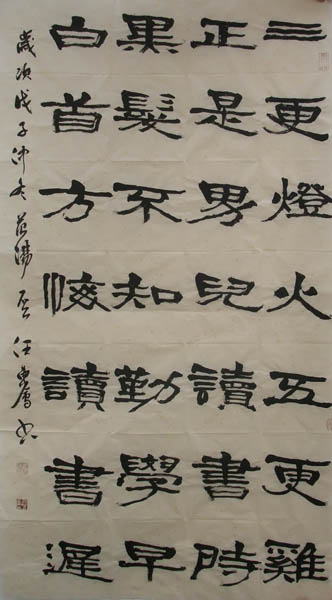 三更燈火五更雞
正是男兒讀書時
黑髮不知勤學早
白首方悔讀書遲
歲次戊子仲冬
書